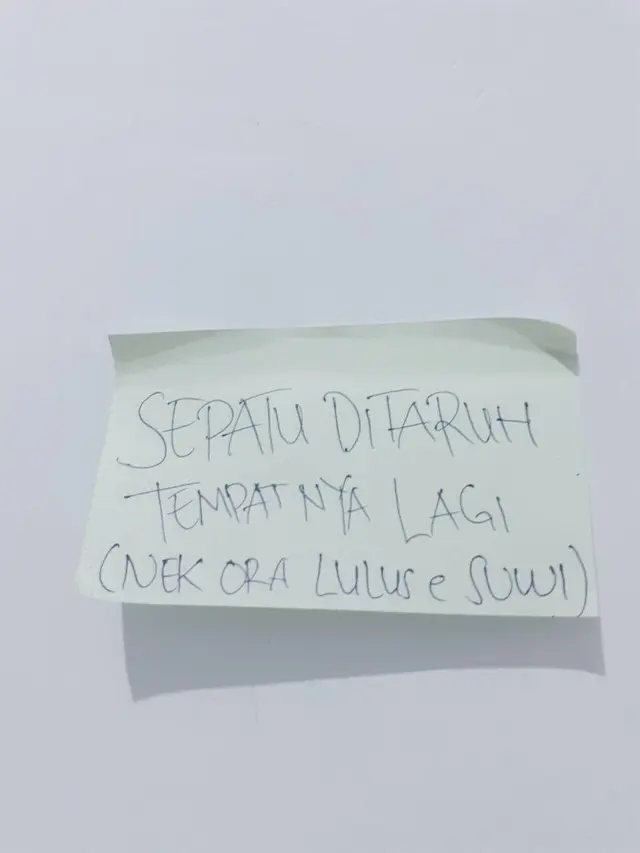 SEPATU DITARUH
TEMPATNYA LAGI
(NEK ORA LULUSe SUWI)